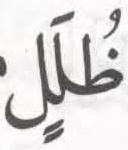 ظُلَلٍ